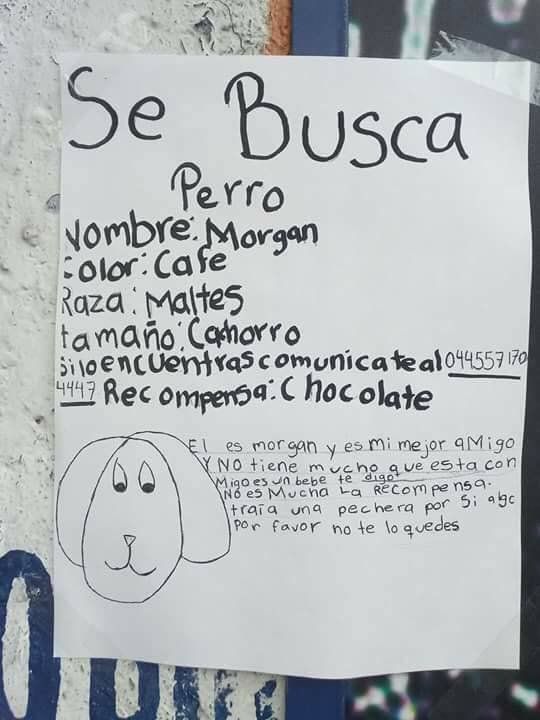 Se Busca
Perro
Nombre: Morgan
Color: Cafe
Raza: Maltes
tamaño: Cahorro
Si lo encuentras comunicate al 044557170
4447 Recompensa: Chocolate
El es morgan y es mi mejor aMigo
Y NO tiene mucho que esta con
Migo es un bebe te digo
No es Mucha La Recompensa.
traía una pechera por si algo
Por favor no te lo quedes